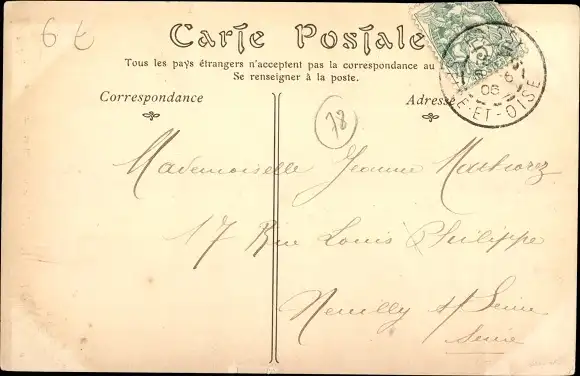 6 t
Carte Postale
Tous les pays étrangers n'acceptent pas la correspondance au
Se renseigner à la poste.
Correspondance
Adresse
78
6
06
ET-OISE
Mademoiselle Jeanne
17 Rue Louis Philippe
Neuilly s/ Seine
Seine